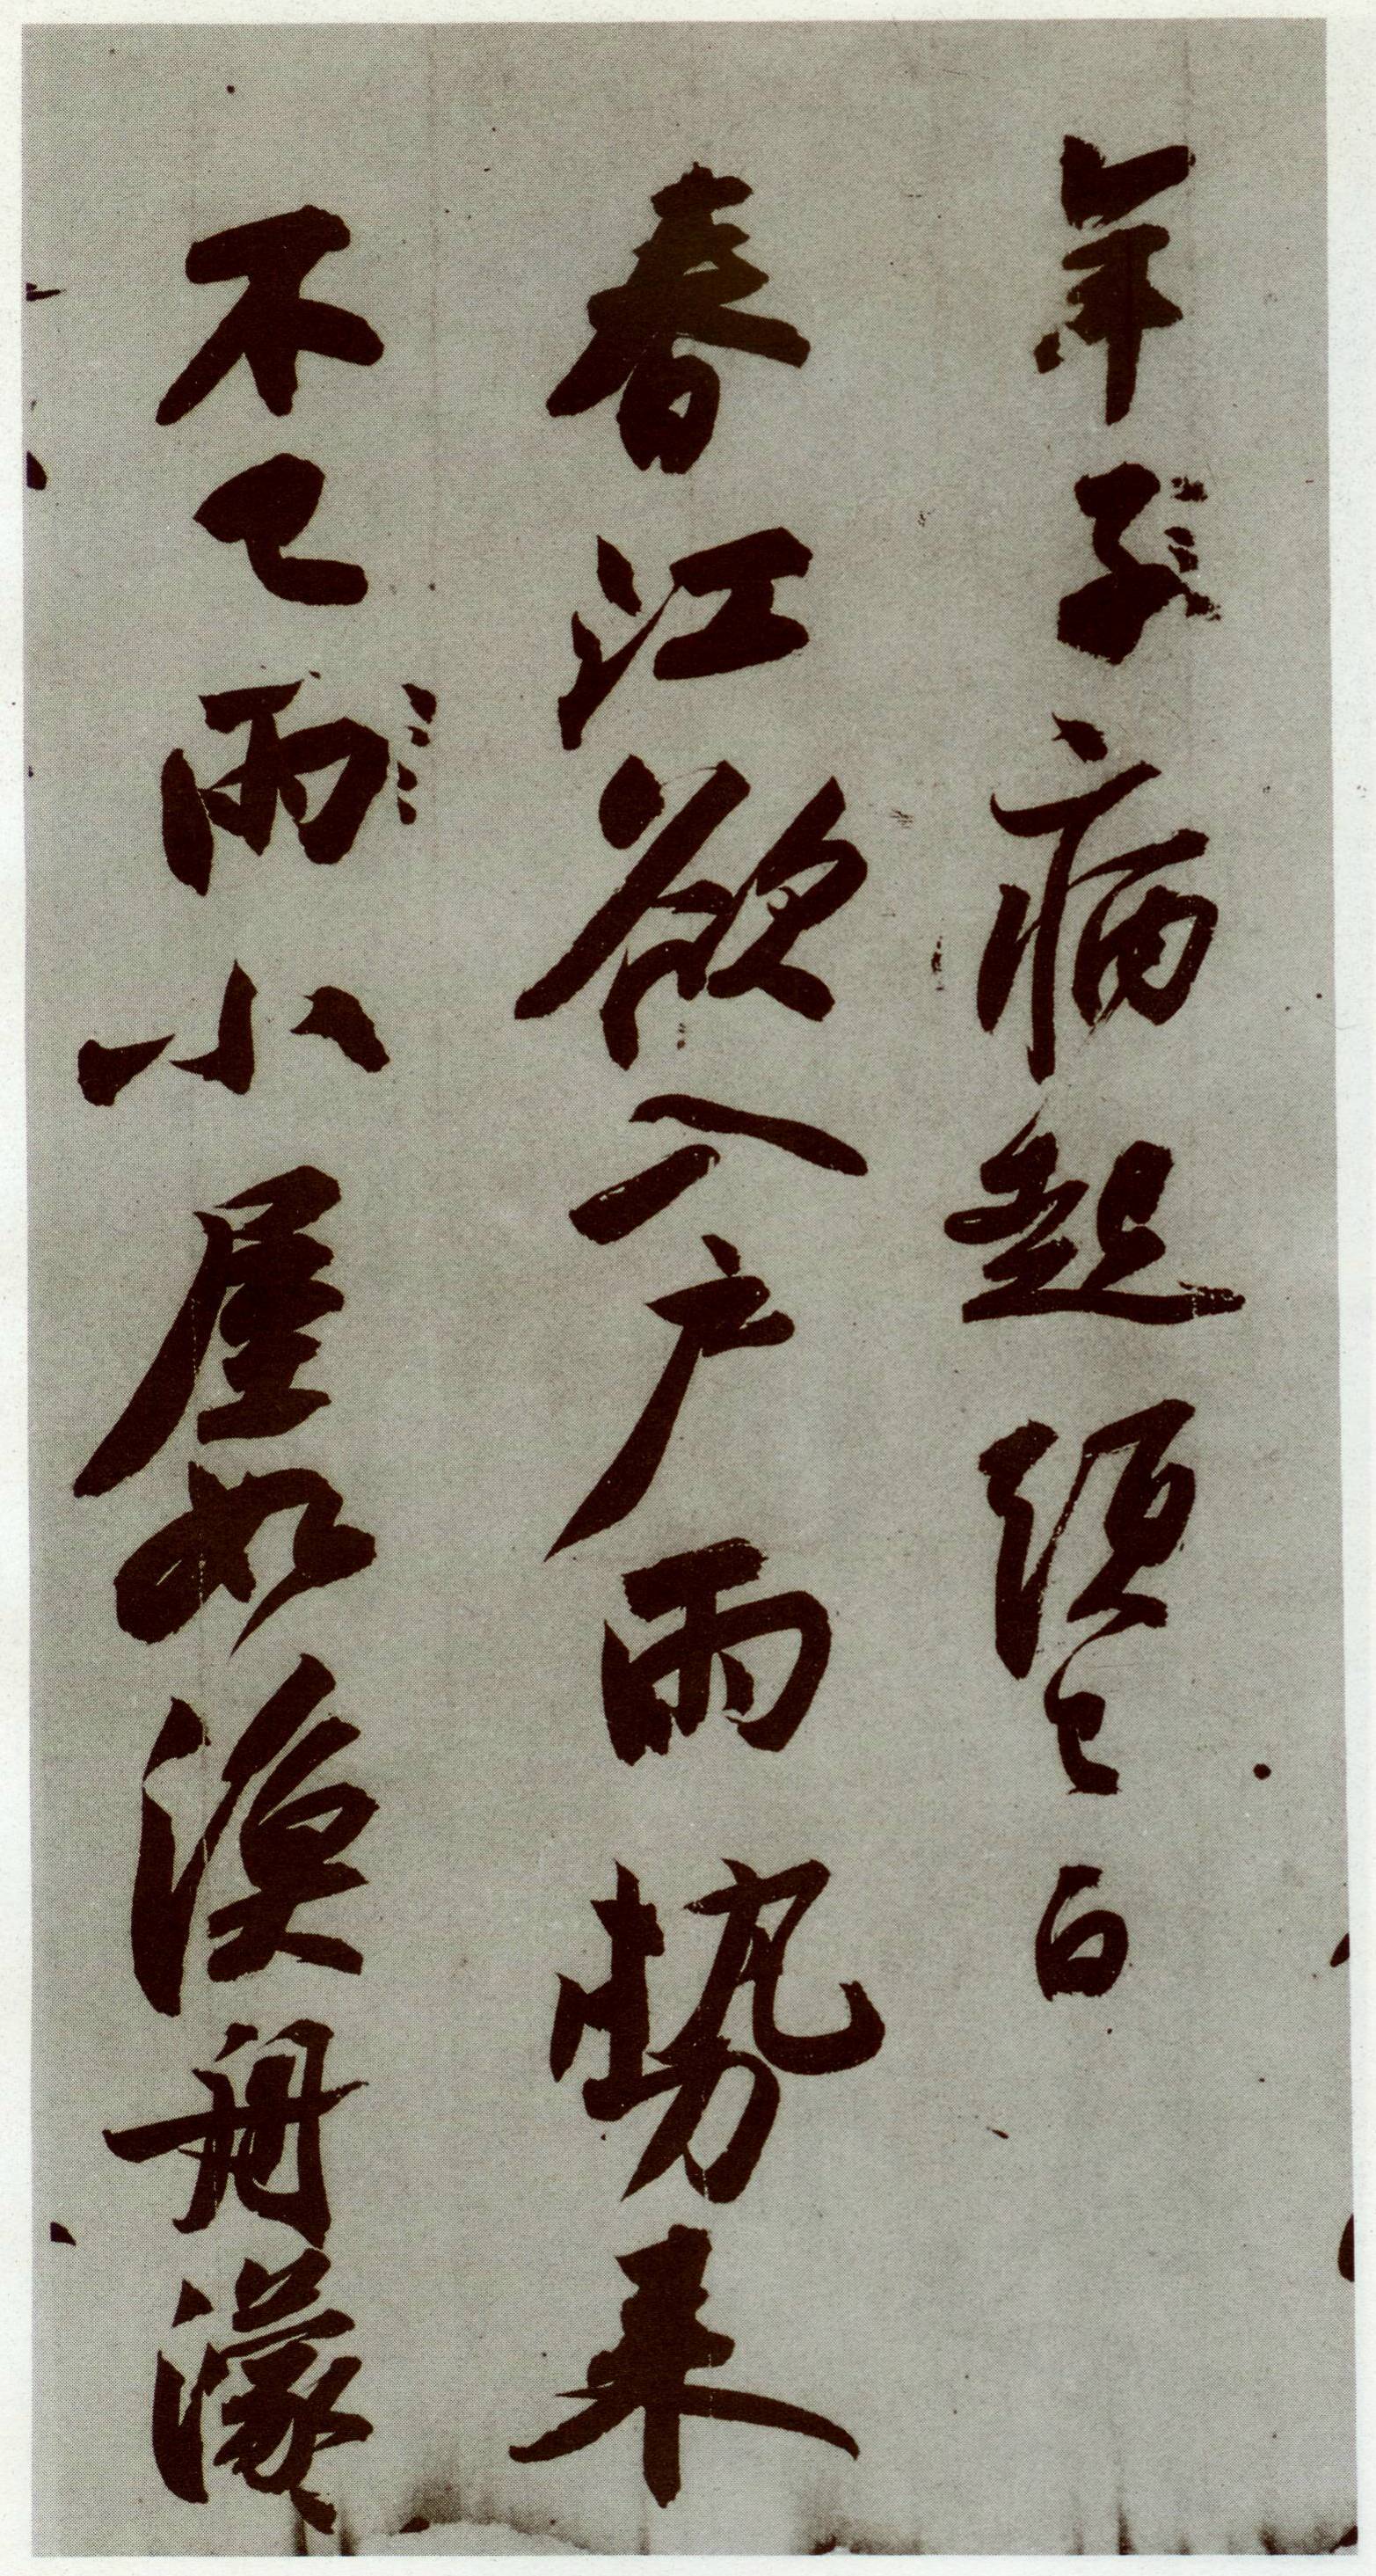 年子病起須已白
春江欲入戶雨勢来
不已雨小屋如漁舟濛〻